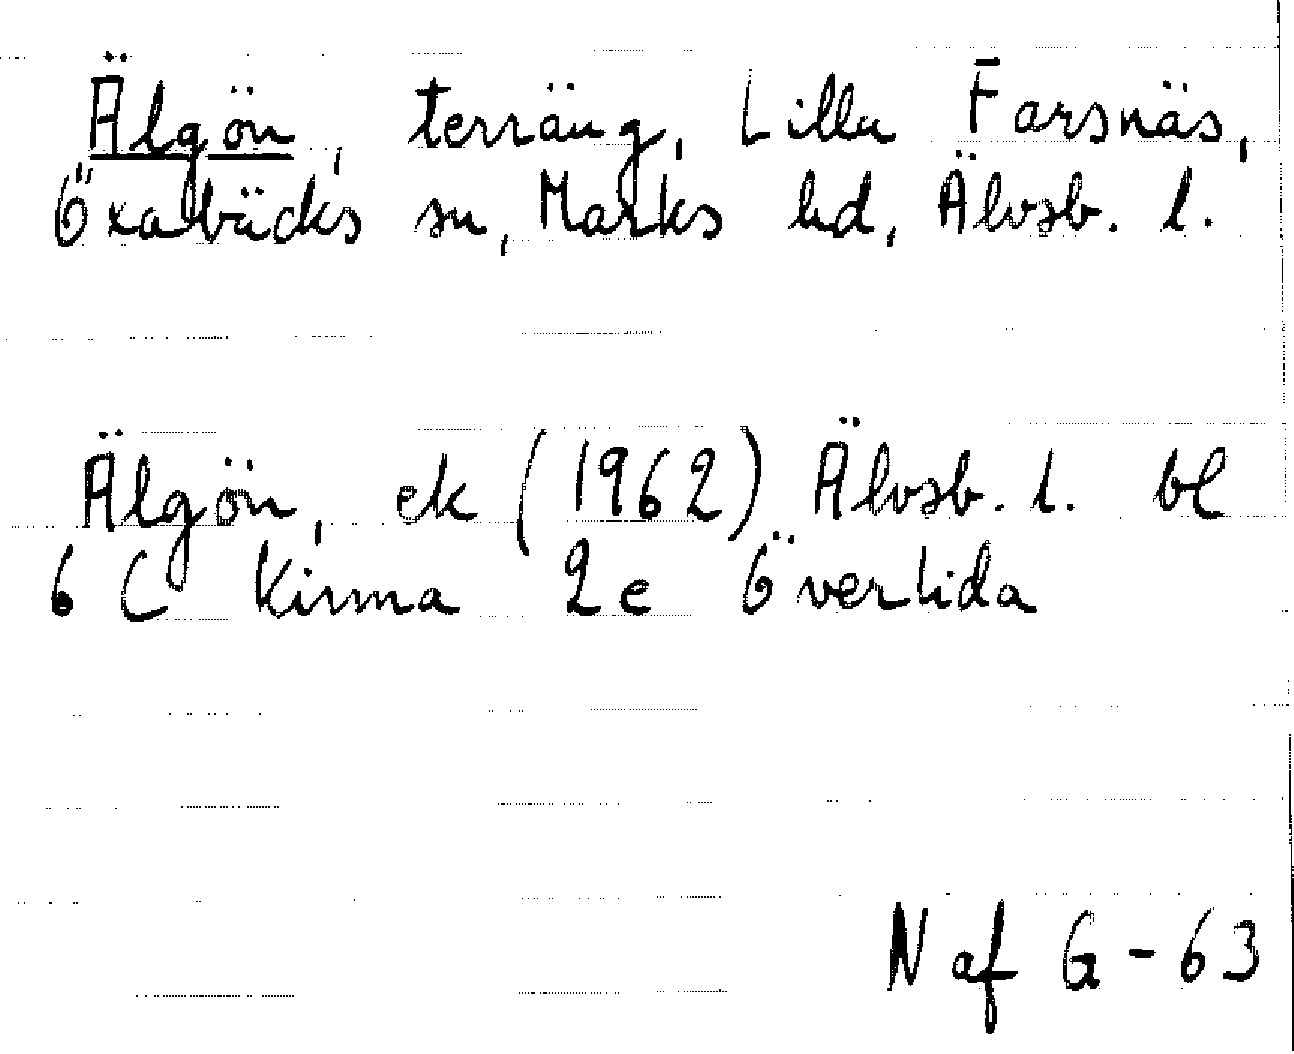 Älgön, terräng, Lilla Farsnäs,
Öxabäcks sn, Marks hd, Älvsb. l.
Älgön, ek (1962) Älvsb. l. bl
6 C Kinna 2e Överlida
N af G - 63